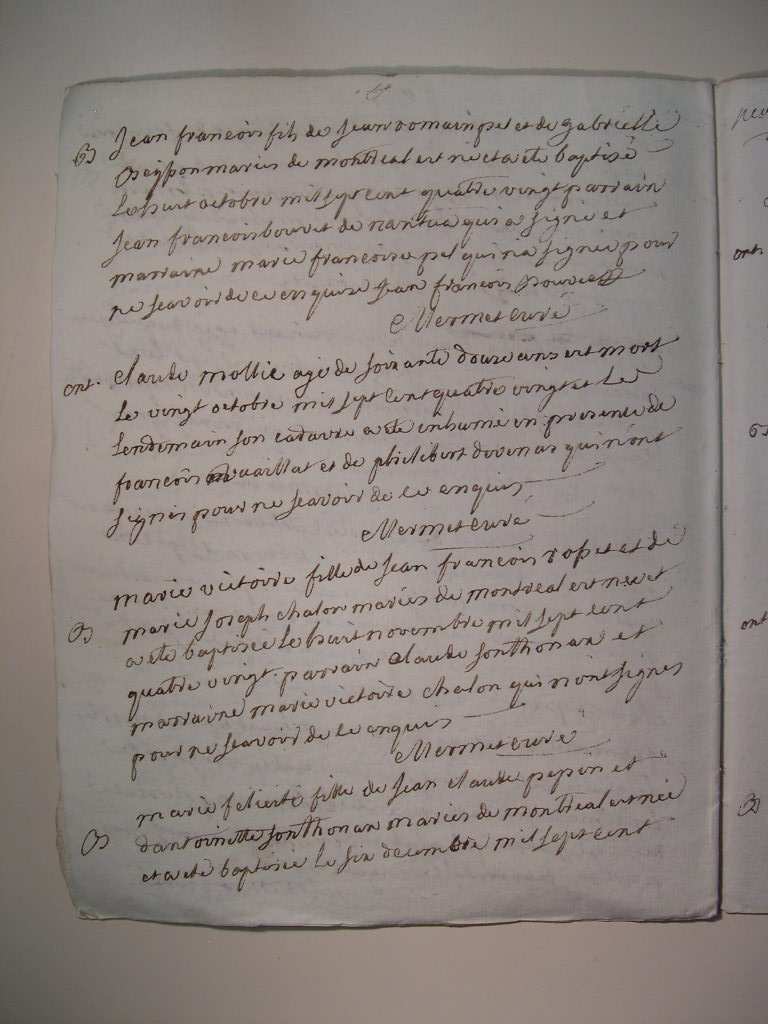 B jean francois fils de jean romain pel et de gabrielle
maries de montreal est né et a eté baptisé
le huit octobre mil sept cent quatre vingt parrain
jean francois bouvet de nantua qui a signé et
marraine marie francoise pel qui n'a signée pour
ne scavoir de ce enquise jean francois bouvet
Mermet curé
ent. claude mollie agé de soixante douze ans est mort
le vingt octobre mil sept cent quatre vingt et le
lendemain son cadavre a eté inhumé en presence de
francois vuaillat et de philibert devenas qui n'ont
signés pour ne scavoir de ce enquis
Mermet curé
marie victoire fille de jean francois ropet et de
B marie joseph chalon maries de montreal est nee et
a eté baptisée le huit novembre mil sept cent
quatre vingt. parrain claude sonthonax et
marraine marie victoire chalon qui n'ont signés
pour ne scavoir de ce enquis
Mermet curé
marie felicité fille de jean claude pepin et
B d'antoinette sonthonax maries de montreal est née
et a eté baptisée le six decembre mil sept cent
ont.
ont
B